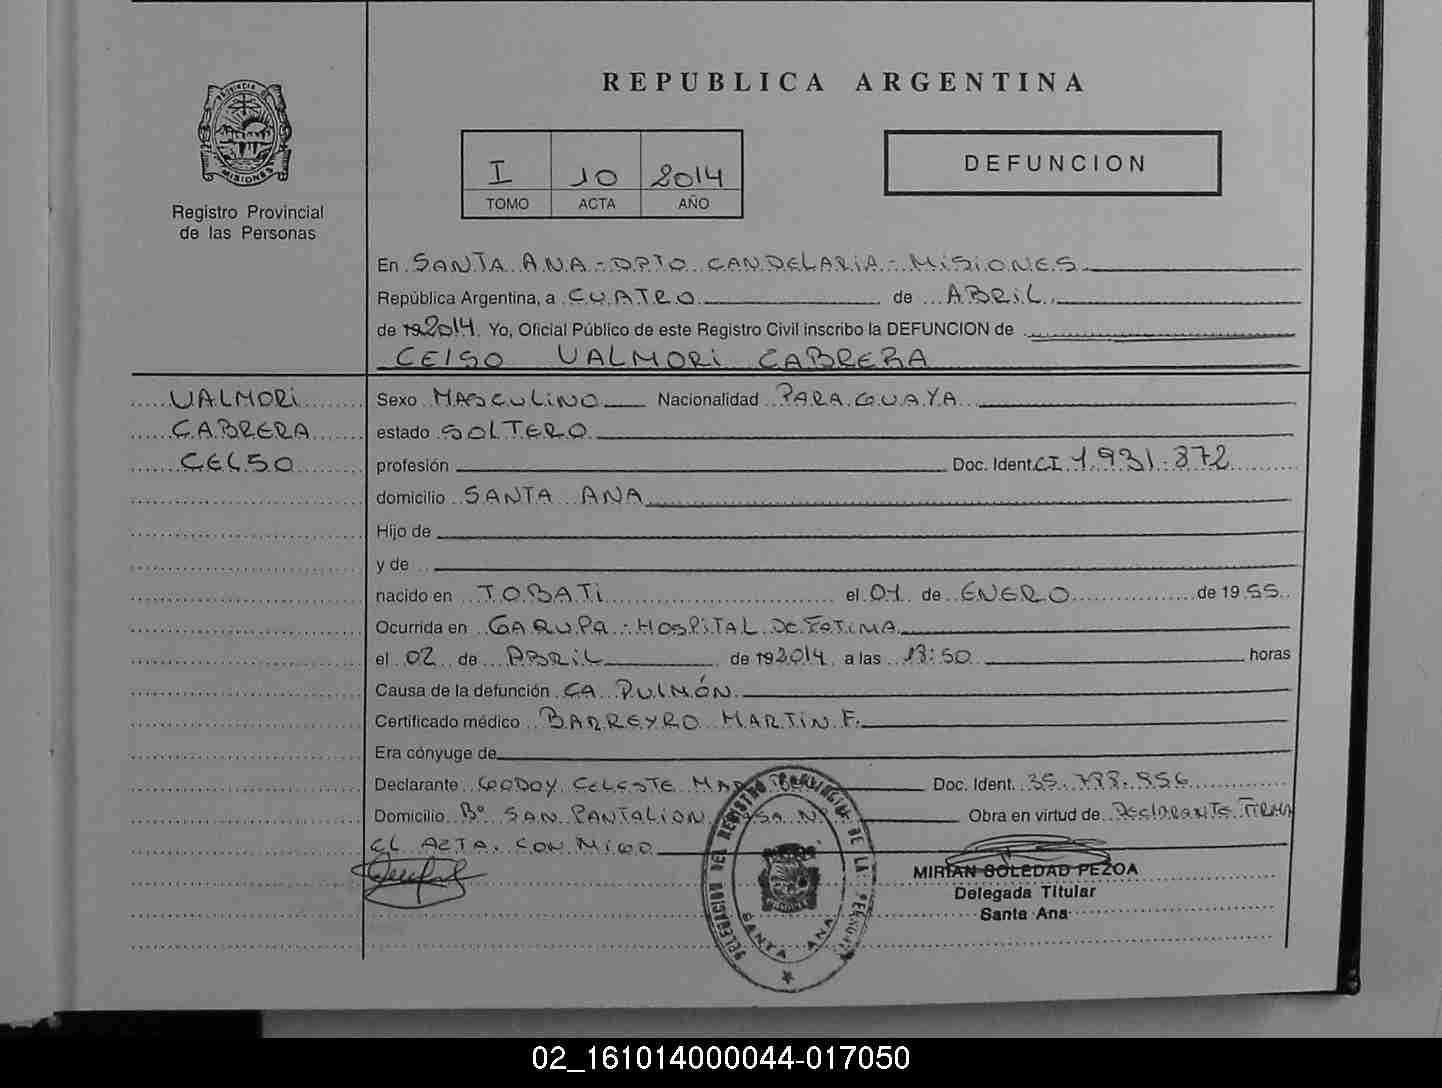 REPUBLICA ARGENTINA
PROVINCIA DE
MISIONES
Registro Provincial
de las Personas
I 10 2014
TOMO ACTA AÑO
DEFUNCION
En SANTA ANA - DPTO CANDELARIA - MISIONES
República Argentina, a CUATRO de ABRIL
de 192014. Yo, Oficial Público de este Registro Civil inscribo la DEFUNCION de
CELSO VALMORI CABRERA
VALMORI
CABRERA
CELSO
Sexo MASCULINO Nacionalidad PARAGUAYA
estado SOLTERO
profesión Doc. Ident. CI 1.931.372
domicilio SANTA ANA
Hijo de
y de
nacido en TOBATI el 01 de ENERO de 1955
Ocurrida en GARUPA - HOSPITAL DE FATIMA
el 02 de ABRIL de 192014 a las 13:50 horas
Causa de la defunción CA PULMÓN
Certificado médico BARREYRO MARTIN F.
Era cónyuge de
Declarante GODOY CELESTE Doc. Ident. 35.
Domicilio Bº SAN PANTALION CASA Nº Obra en virtud de DECLARANTE FIRMA
EL ACTA CON MIGO
MIRIAN SOLEDAD PEZOA
Delegada Titular
Santa Ana
DELEGACION DEL REGISTRO PROVINCIAL DE LAS PERSONAS
SANTA ANA
02_161014000044-017050